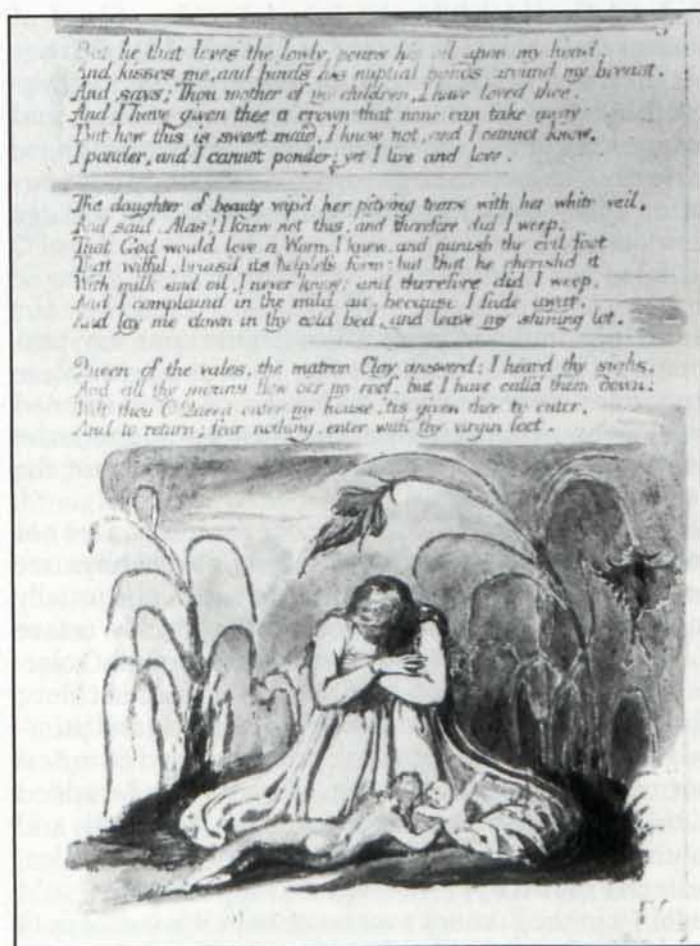 But he that loves the lowly, pours his oil upon my head,
And kisses me, and binds his nuptial bands around my breast.
And says; Thou mother of my children, I have loved thee.
And I have given thee a crown that none can take away
But how this is sweet maid, I know not, and I cannot know.
I ponder, and I cannot ponder; yet I live and love.
The daughter of beauty wip'd her pitying tears with her white veil,
And said, Alas! I knew not this, and therefore did I weep:
That God would love a Worm I knew, and punish the evil foot
That wilful, bruis'd its helpless form: but that he cherish'd it
With milk and oil, I never knew; and therefore did I weep,
And I complaind in the mild air, because I fade away,
And lay me down in thy cold bed, and leave my shining lot.
Queen of the vales, the matron Clay answerd; I heard thy sighs,
And all thy moans flew o'er my roof, but I have call'd them down:
Wilt thou O Queen enter my house, 'tis given thee to enter,
And to return; fear nothing, enter with thy virgin feet.